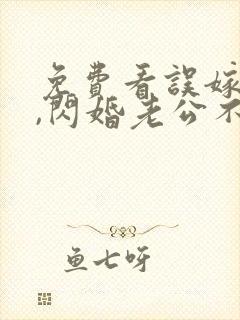 免費看誤嫁
,閃婚老公不
魚七呀